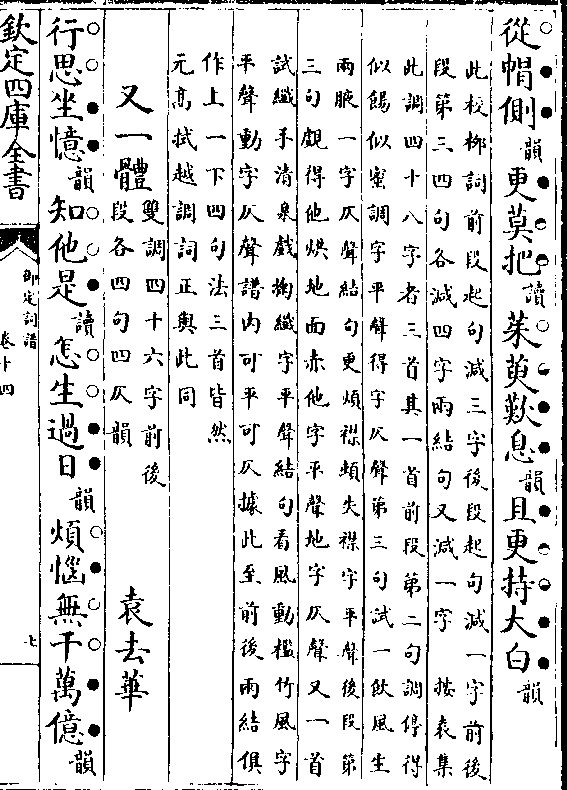 從帽側韻更莫把讀茱萸歎息韻且更持大白韻
此校柳詞前段起句減三字後段起句減一字前後
段第三四句各減四字兩結句又減一字 按袁集
此調四十八字者三首其一首前段第二句調停得
似餳似蜜調字平聲得字仄聲第三句試一飲風生
兩腋一字仄聲結句更煩襟頓失襟字平聲後段第
三句覷得他烘地面赤他字平聲地字仄聲又一首
試纖手清泉戲掬纖字平聲結句看風動檻竹風字
平聲動字仄聲譜內可平可仄據此至前後兩結俱
作上一下四句法三首皆然
元高拭越調詞正與此同
又一體雙調四十六字前後
段各四句四仄韻 袁去華
行思坐憶韻知他是讀怎生過日韻煩惱無千萬億韻
欽定四庫全書
御定詞譜
卷十四
七